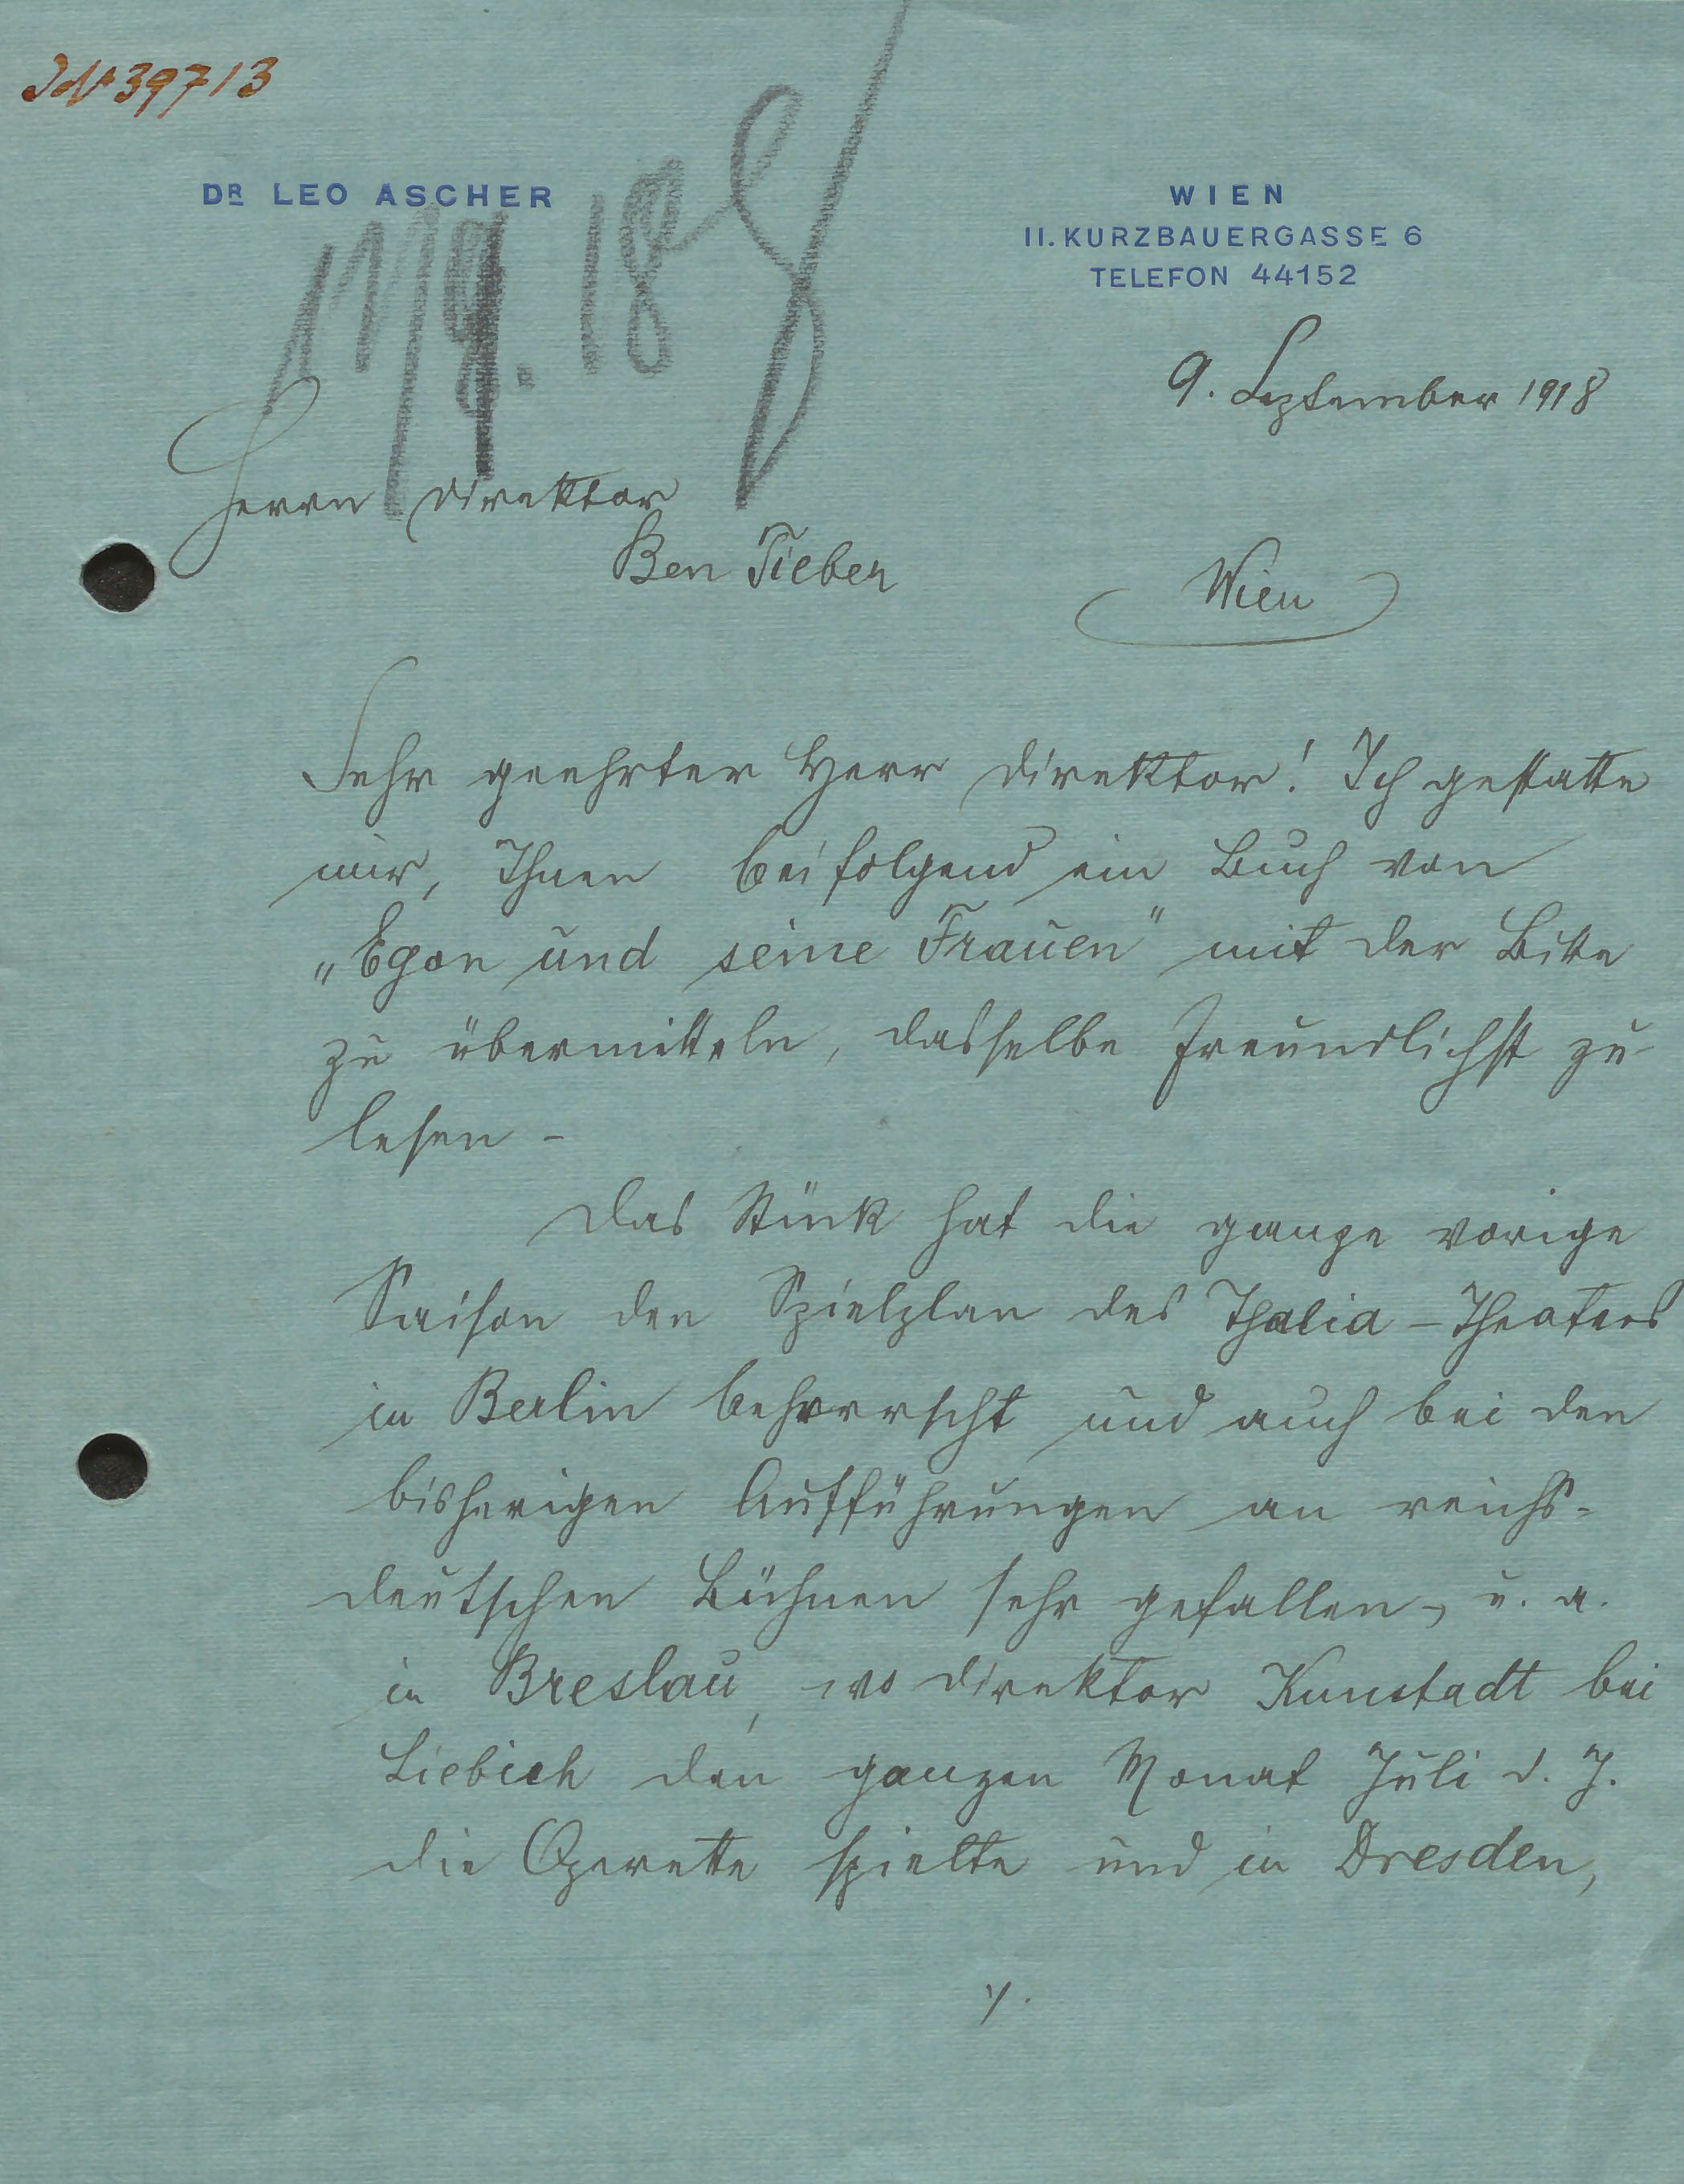 JN 39713
DR LEO ASCHER
WIEN
II. KURZBAUERGASSE 6
TELEFON 44152
11/9. 18
9. September 1918
Herrn Direktor
Ben Tieber
Wien
Sehr geehrter Herr Direktor! Ich gestatte
mir, Ihnen beifolgend ein Buch von
„Egon und seine Frauen" mit der Bitte
zu übermitteln, dasselbe freundlichst zu
lesen –
Das Stück hat die ganze vorige
Saison den Spielplan des Thalia – Theaters
in Berlin beherrscht und auch bei den
bisherigen Aufführungen an reichs-
deutschen Bühnen sehr gefallen –, u. a.
in Breslau, wo Direktor Kunstadt bei
Liebich den ganzen Monat Juli d. J.
die Operette spielte und in Dresden,